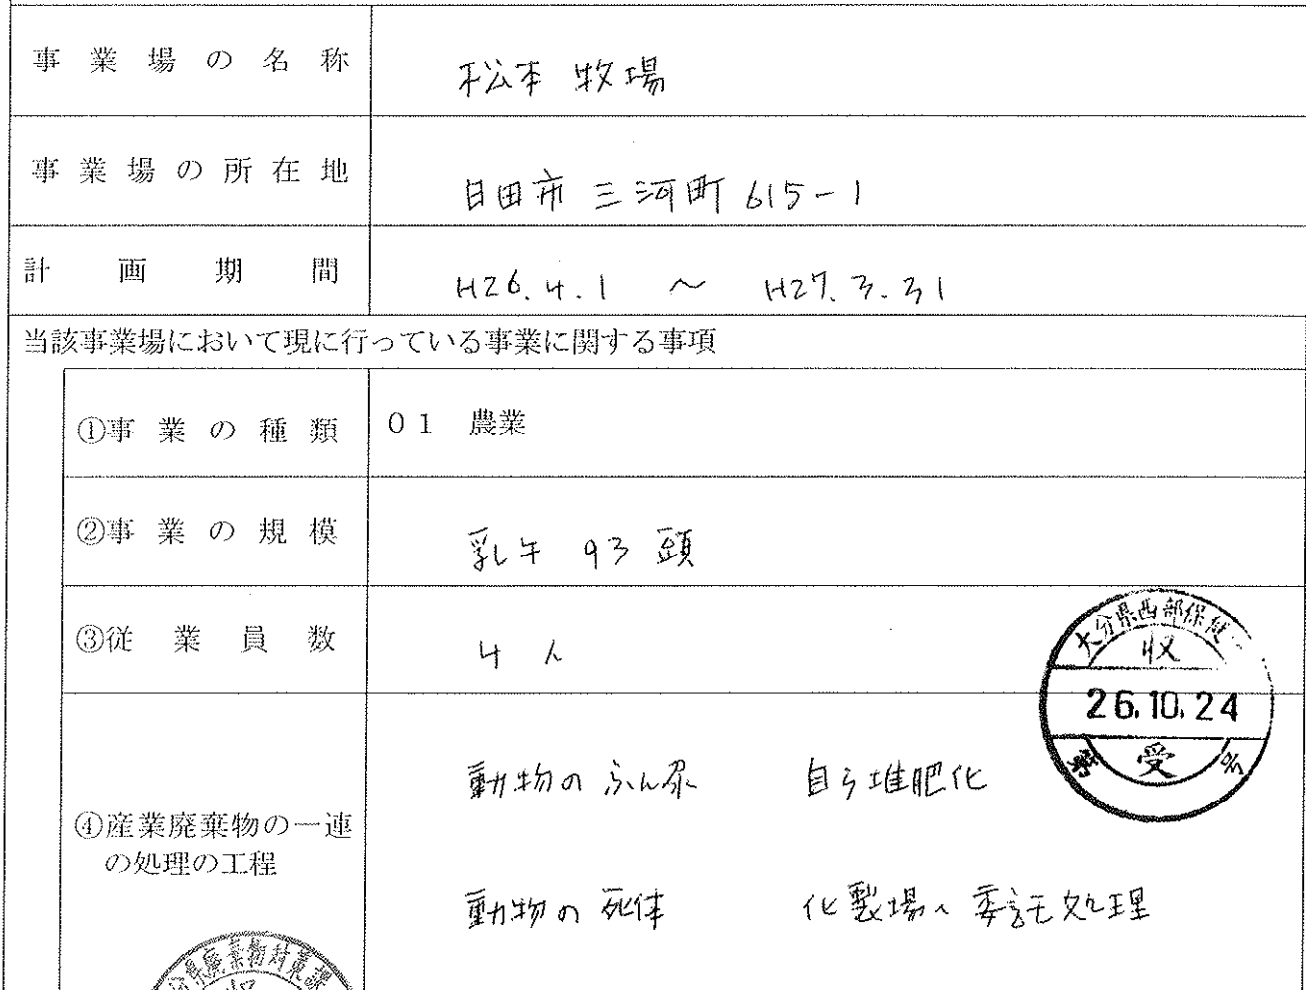 事業場の名称 松本 牧場
事業場の所在地 日田市 三河町 615-1
計画期間 H26.4.1 ～ H27.3.31
当該事業場において現に行っている事業に関する事項
①事業の種類 01 農業
②事業の規模 乳牛 93 頭
③従業員数 4 人
大分県西部保健
収
26.10.24
受
第 号
④産業廃棄物の一連
の処理の工程
動物のふん尿 自ら堆肥化
動物の死体 化製場へ委託処理
分県廃棄物対策課
収